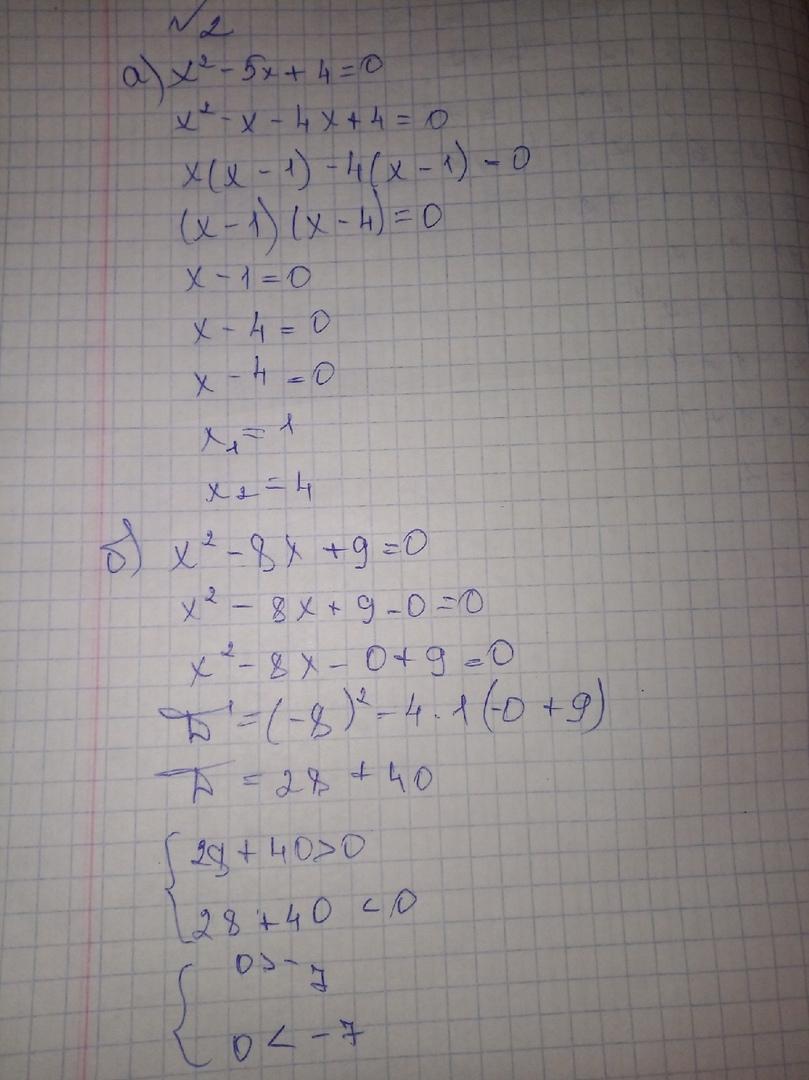 №2
а) x² - 5x + 4 = 0
x² - x - 4x + 4 = 0
x(x - 1) - 4(x - 1) = 0
(x - 1)(x - 4) = 0
x - 1 = 0
x - 4 = 0
x - 4 = 0
x₁ = 1
x₂ = 4
б) x² - 8x + 9 = 0
x² - 8x + 9 - 0 = 0
x² - 8x - 0 + 9 = 0
D = (-8)² - 4 · 1(-0 + 9)
D = 28 + 40
28 + 40 > 0
28 + 40 < 0
0 > - 7
0 < - 7